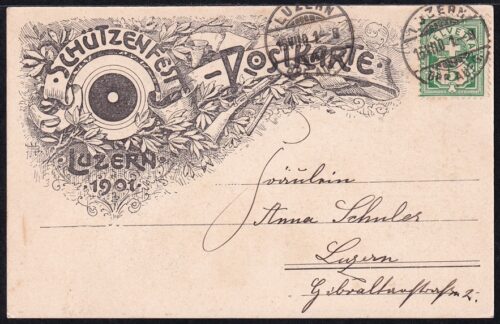 SCHÜTZENFEST
POSTKARTE
LUZERN
1901
LUZERN
LUZERN
HELVETIA
Fräulein
Anna Schuler
Luzern
Gibraltarstrasse 2.